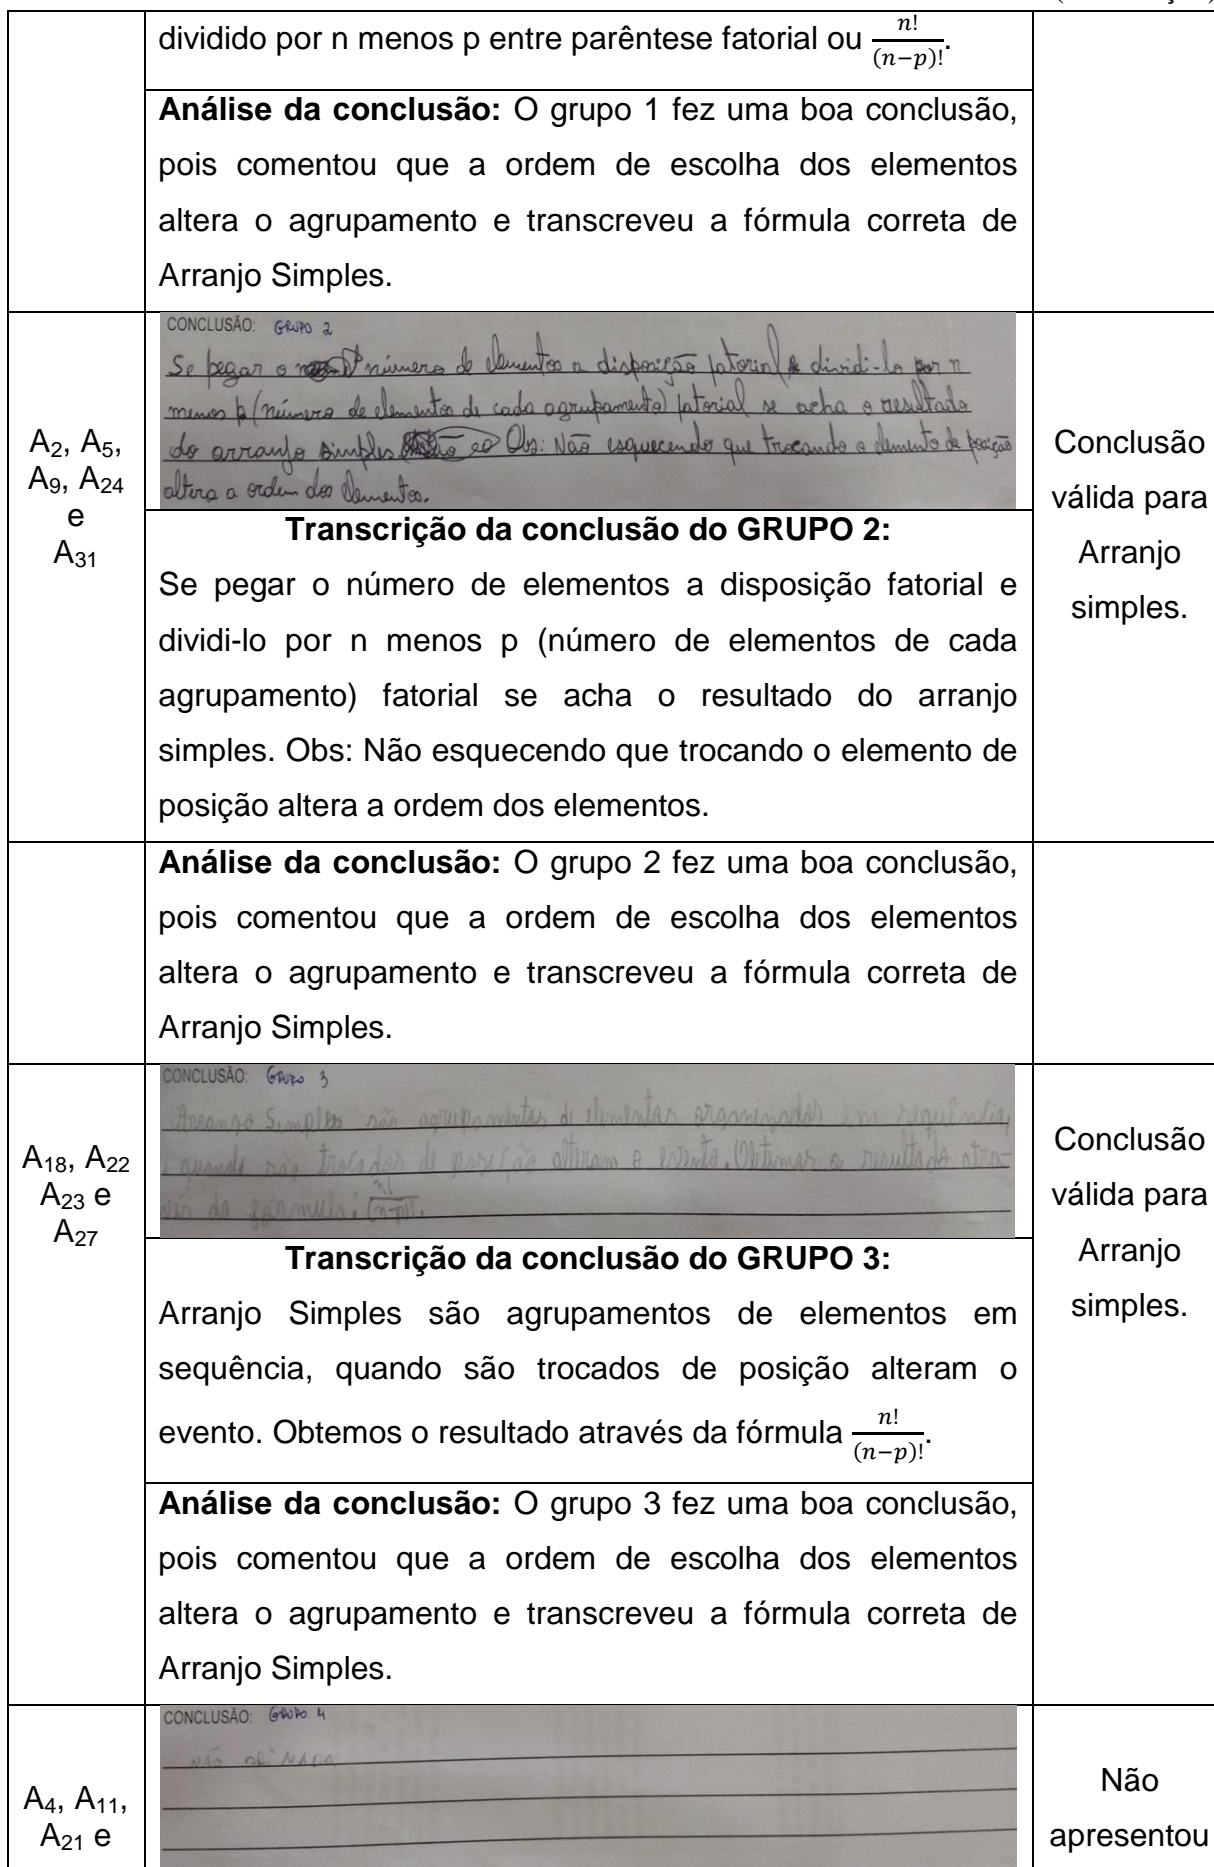 dividido por n menos p entre parêntese fatorial ou n!/(n−p)!.
Análise da conclusão: O grupo 1 fez uma boa conclusão,
pois comentou que a ordem de escolha dos elementos
altera o agrupamento e transcreveu a fórmula correta de
Arranjo Simples.
A2, A5,
A9, A24
e
A31
CONCLUSÃO: GRUPO 2
Se pegar o número de elementos a disposição fatorial e dividi-lo por n
menos p (número de elementos de cada agrupamento) fatorial se acha o resultado
do arranjo simples Obs: Não esquecendo que trocando o elemento de posição
altera a ordem dos elementos.
Transcrição da conclusão do GRUPO 2:
Se pegar o número de elementos a disposição fatorial e
dividi-lo por n menos p (número de elementos de cada
agrupamento) fatorial se acha o resultado do arranjo
simples. Obs: Não esquecendo que trocando o elemento de
posição altera a ordem dos elementos.
Conclusão
válida para
Arranjo
simples.
Análise da conclusão: O grupo 2 fez uma boa conclusão,
pois comentou que a ordem de escolha dos elementos
altera o agrupamento e transcreveu a fórmula correta de
Arranjo Simples.
A18, A22
A23 e
A27
CONCLUSÃO: GRUPO 3
Arranjo Simples são agrupamentos de elementos organizados em sequência,
e quando são trocados de posição alteram o evento. Obtemos o resultado atra-
vés da fórmula: n!/(n-p)!.
Transcrição da conclusão do GRUPO 3:
Arranjo Simples são agrupamentos de elementos em
sequência, quando são trocados de posição alteram o
evento. Obtemos o resultado através da fórmula n!/(n−p)!.
Conclusão
válida para
Arranjo
simples.
Análise da conclusão: O grupo 3 fez uma boa conclusão,
pois comentou que a ordem de escolha dos elementos
altera o agrupamento e transcreveu a fórmula correta de
Arranjo Simples.
A4, A11,
A21 e
CONCLUSÃO: GRUPO 4
não
Não
apresentou